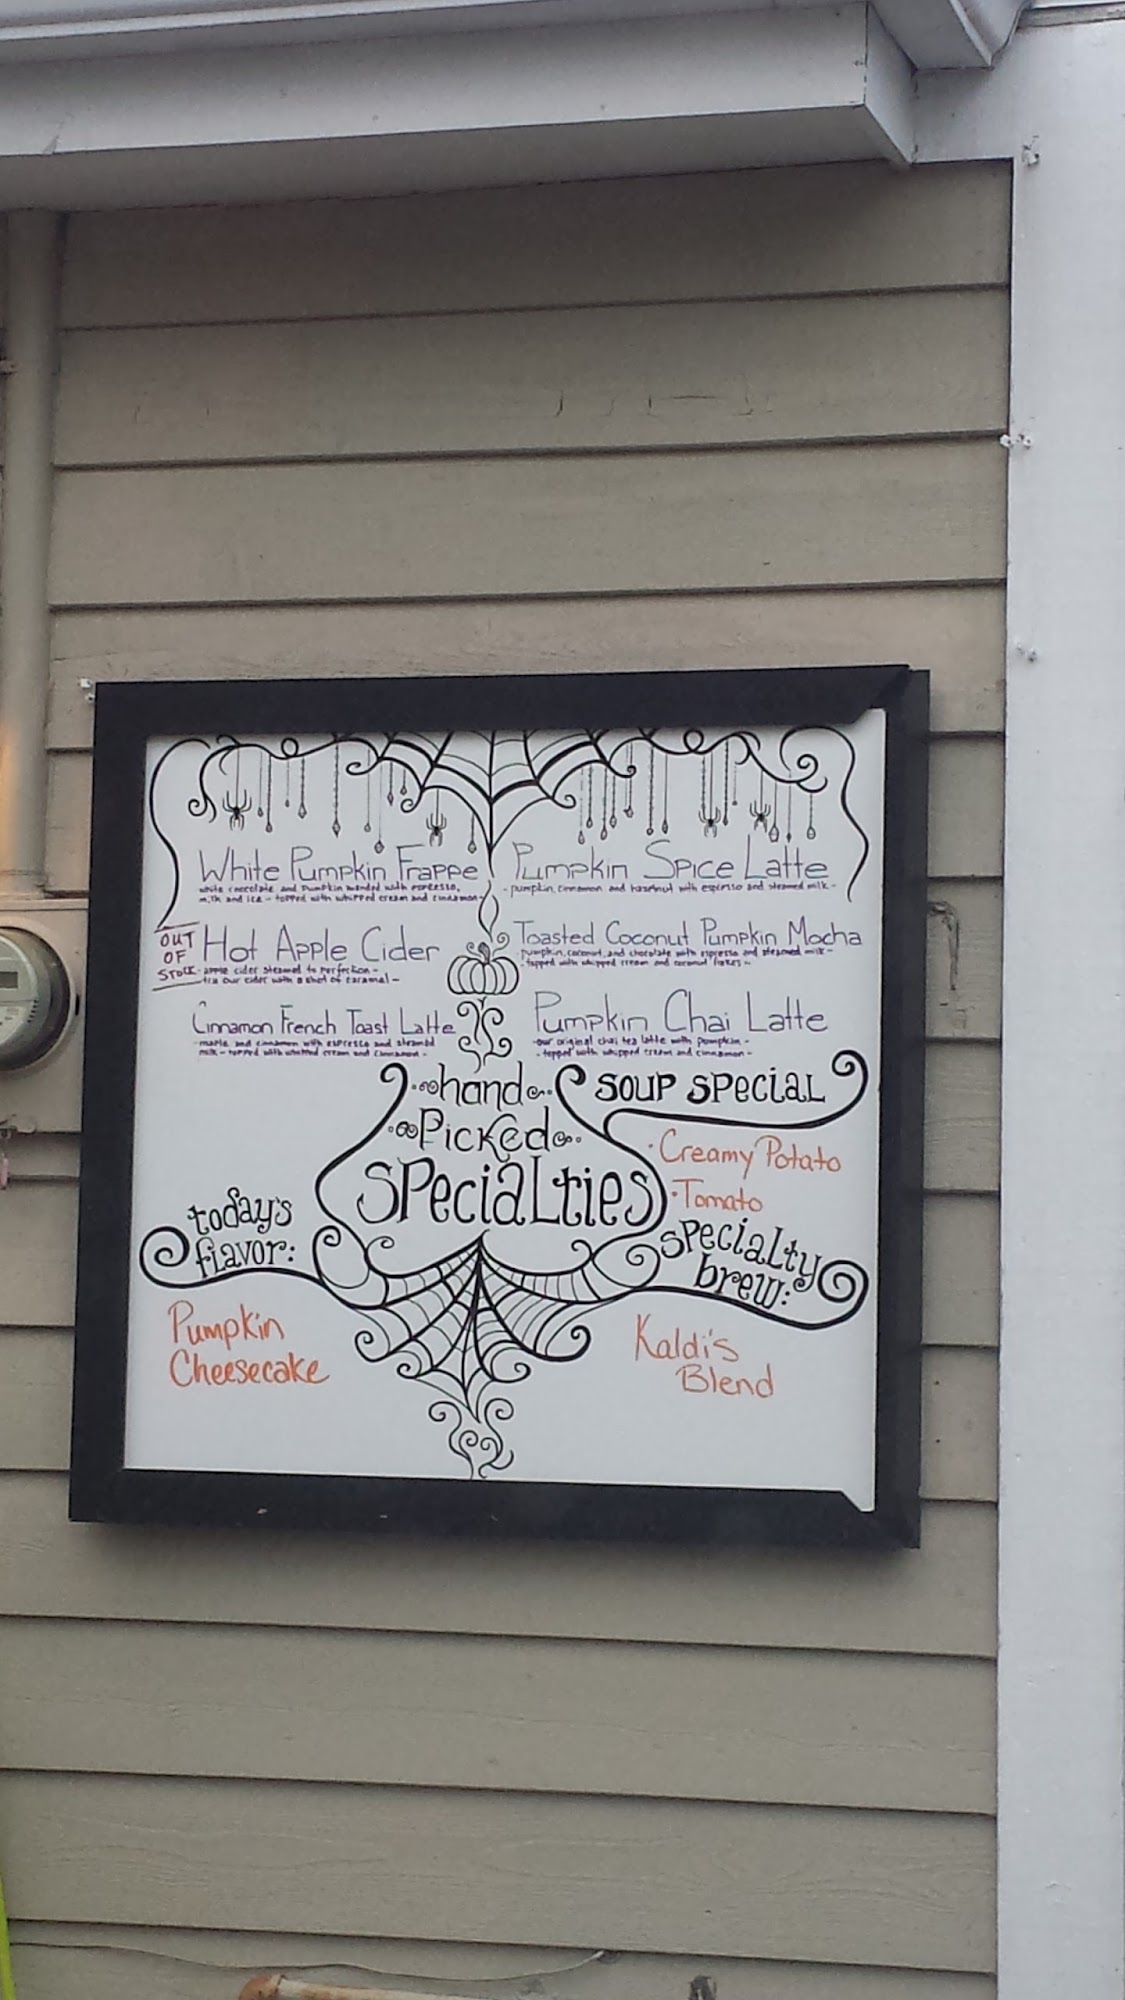 White Pumpkin Frappe
white chocolate and pumpkin blended with espresso,
milk and ice - topped with whipped cream and cinnamon -
Pumpkin Spice Latte
- pumpkin, cinnamon and hazelnut with espresso and steamed milk -
OUT
OF
STOCK
Hot Apple Cider
- apple cider steamed to perfection -
try our cider with a shot of caramel -
Toasted Coconut Pumpkin Mocha
pumpkin, coconut, and chocolate with espresso and steamed milk -
- topped with whipped cream and coconut flakes -
Cinnamon French Toast Latte
- maple and cinnamon with espresso and steamed
milk - topped with whipped cream and cinnamon -
Pumpkin Chai Latte
- our original chai tea latte with pumpkin -
- topped with whipped cream and cinnamon -
hand
Picked
Specialties
Soup Special
· Creamy Potato
· Tomato
today's
flavor:
Pumpkin
Cheesecake
specialty
brew:
Kaldi's
Blend